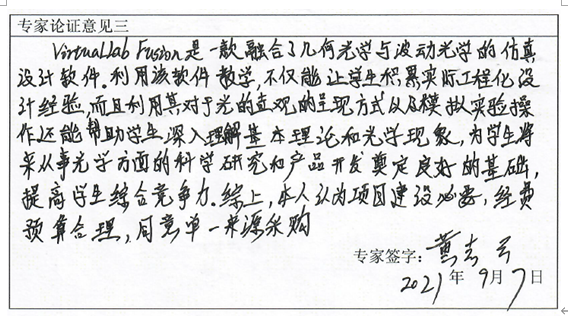 专家论证意见三
VirtualLab Fusion是一款融合了几何光学与波动光学的仿真
设计软件.利用该软件教学,不仅能让学生积累实际工程化设
计经验,而且利用其对于光的直观的呈现方式以及模拟实验操
作还能帮助学生深入理解基本理论和光学现象,为学生将
来从事光学方面的科学研究和产品开发奠定良好的基础,
提高学生综合竞争力.综上,本人认为项目建设必要,经费
预算合理,同意单一来源采购
专家签字:黄志
2021年9月7日